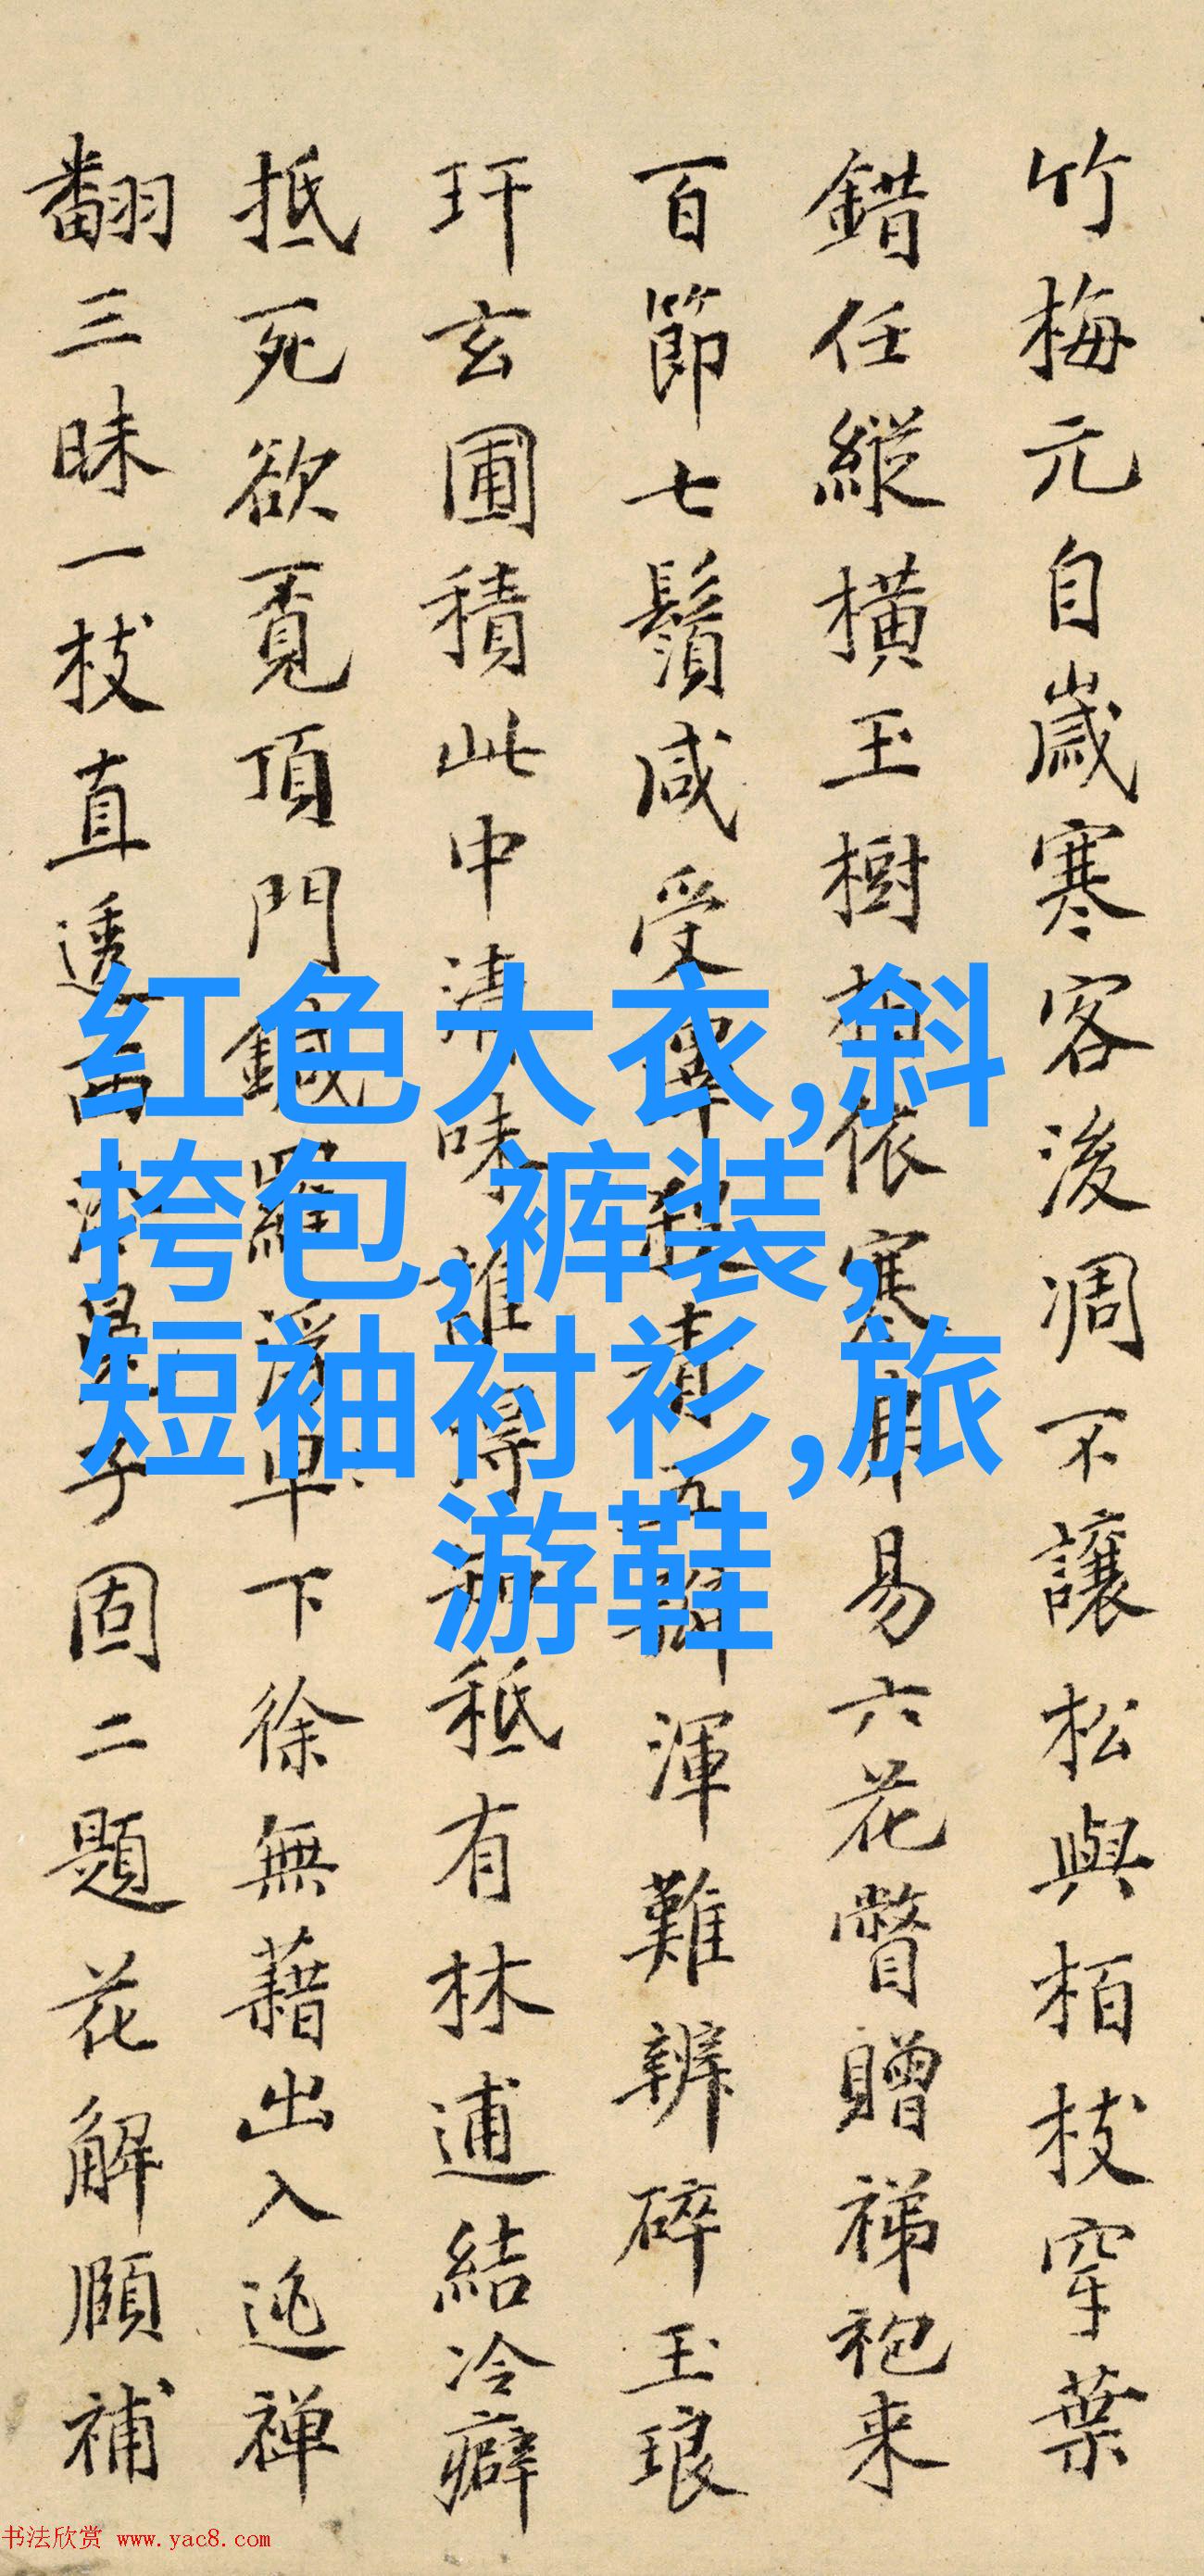 竹梅元自歲寒客後凋不讓松與栢枝穿葉
錯任縱橫玉樹相依寒易六花瞥贈祶袍来
百節七鬚咸受青五渾難辨碎玉琅
玕玄圃積此中清味誰得秪有林逋結冷癖
抵死欲覔頂門鍼羅下徐無藉出入逃禅
翻三昧一枝直透子固二題花解頤補
红色大衣,斜
挎包,裤装,
短袖衬衫,旅
游鞋
书法欣赏 www.yac8.com